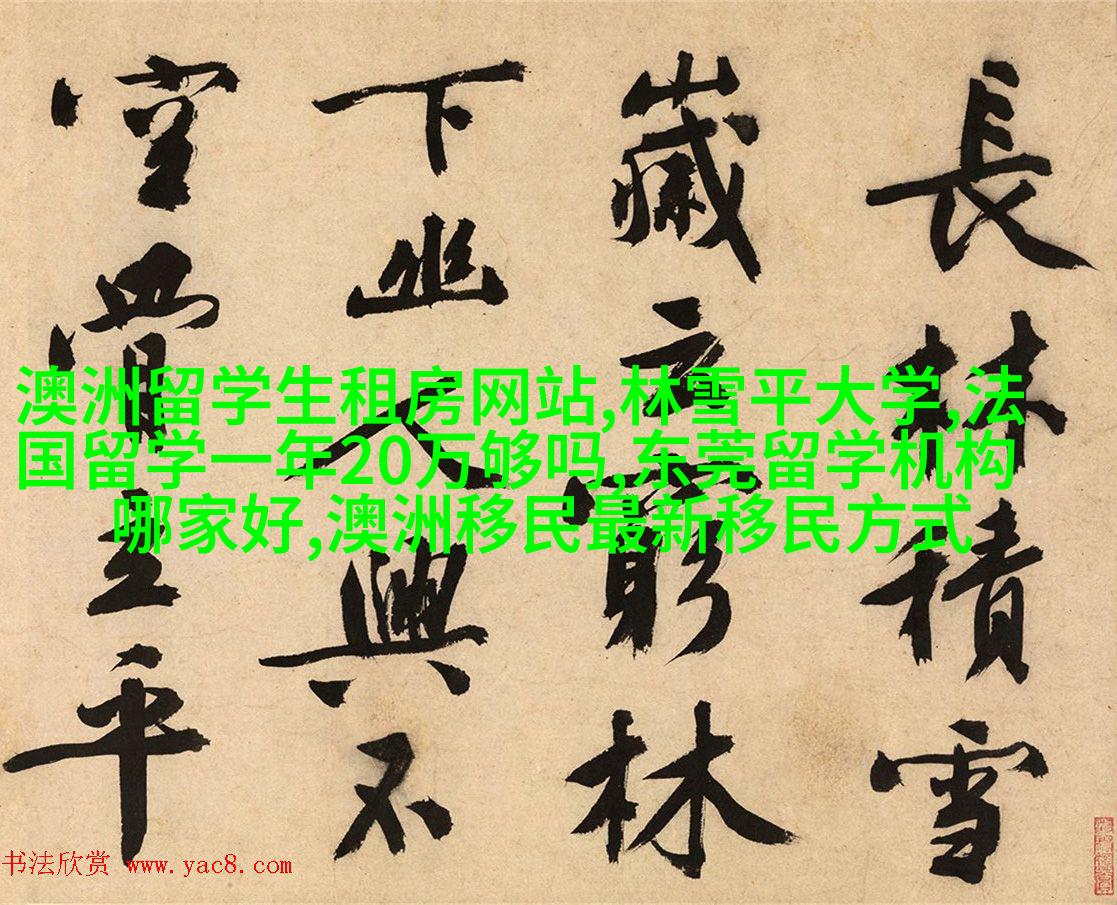 長林積雪
歲窮林
下幽人興不
空骨立平
澳洲留学生租房网站,林雪平大学,法
国留学一年20万够吗,东莞留学机构
哪家好,澳洲移民最新移民方式
书法欣赏 www.yac8.com